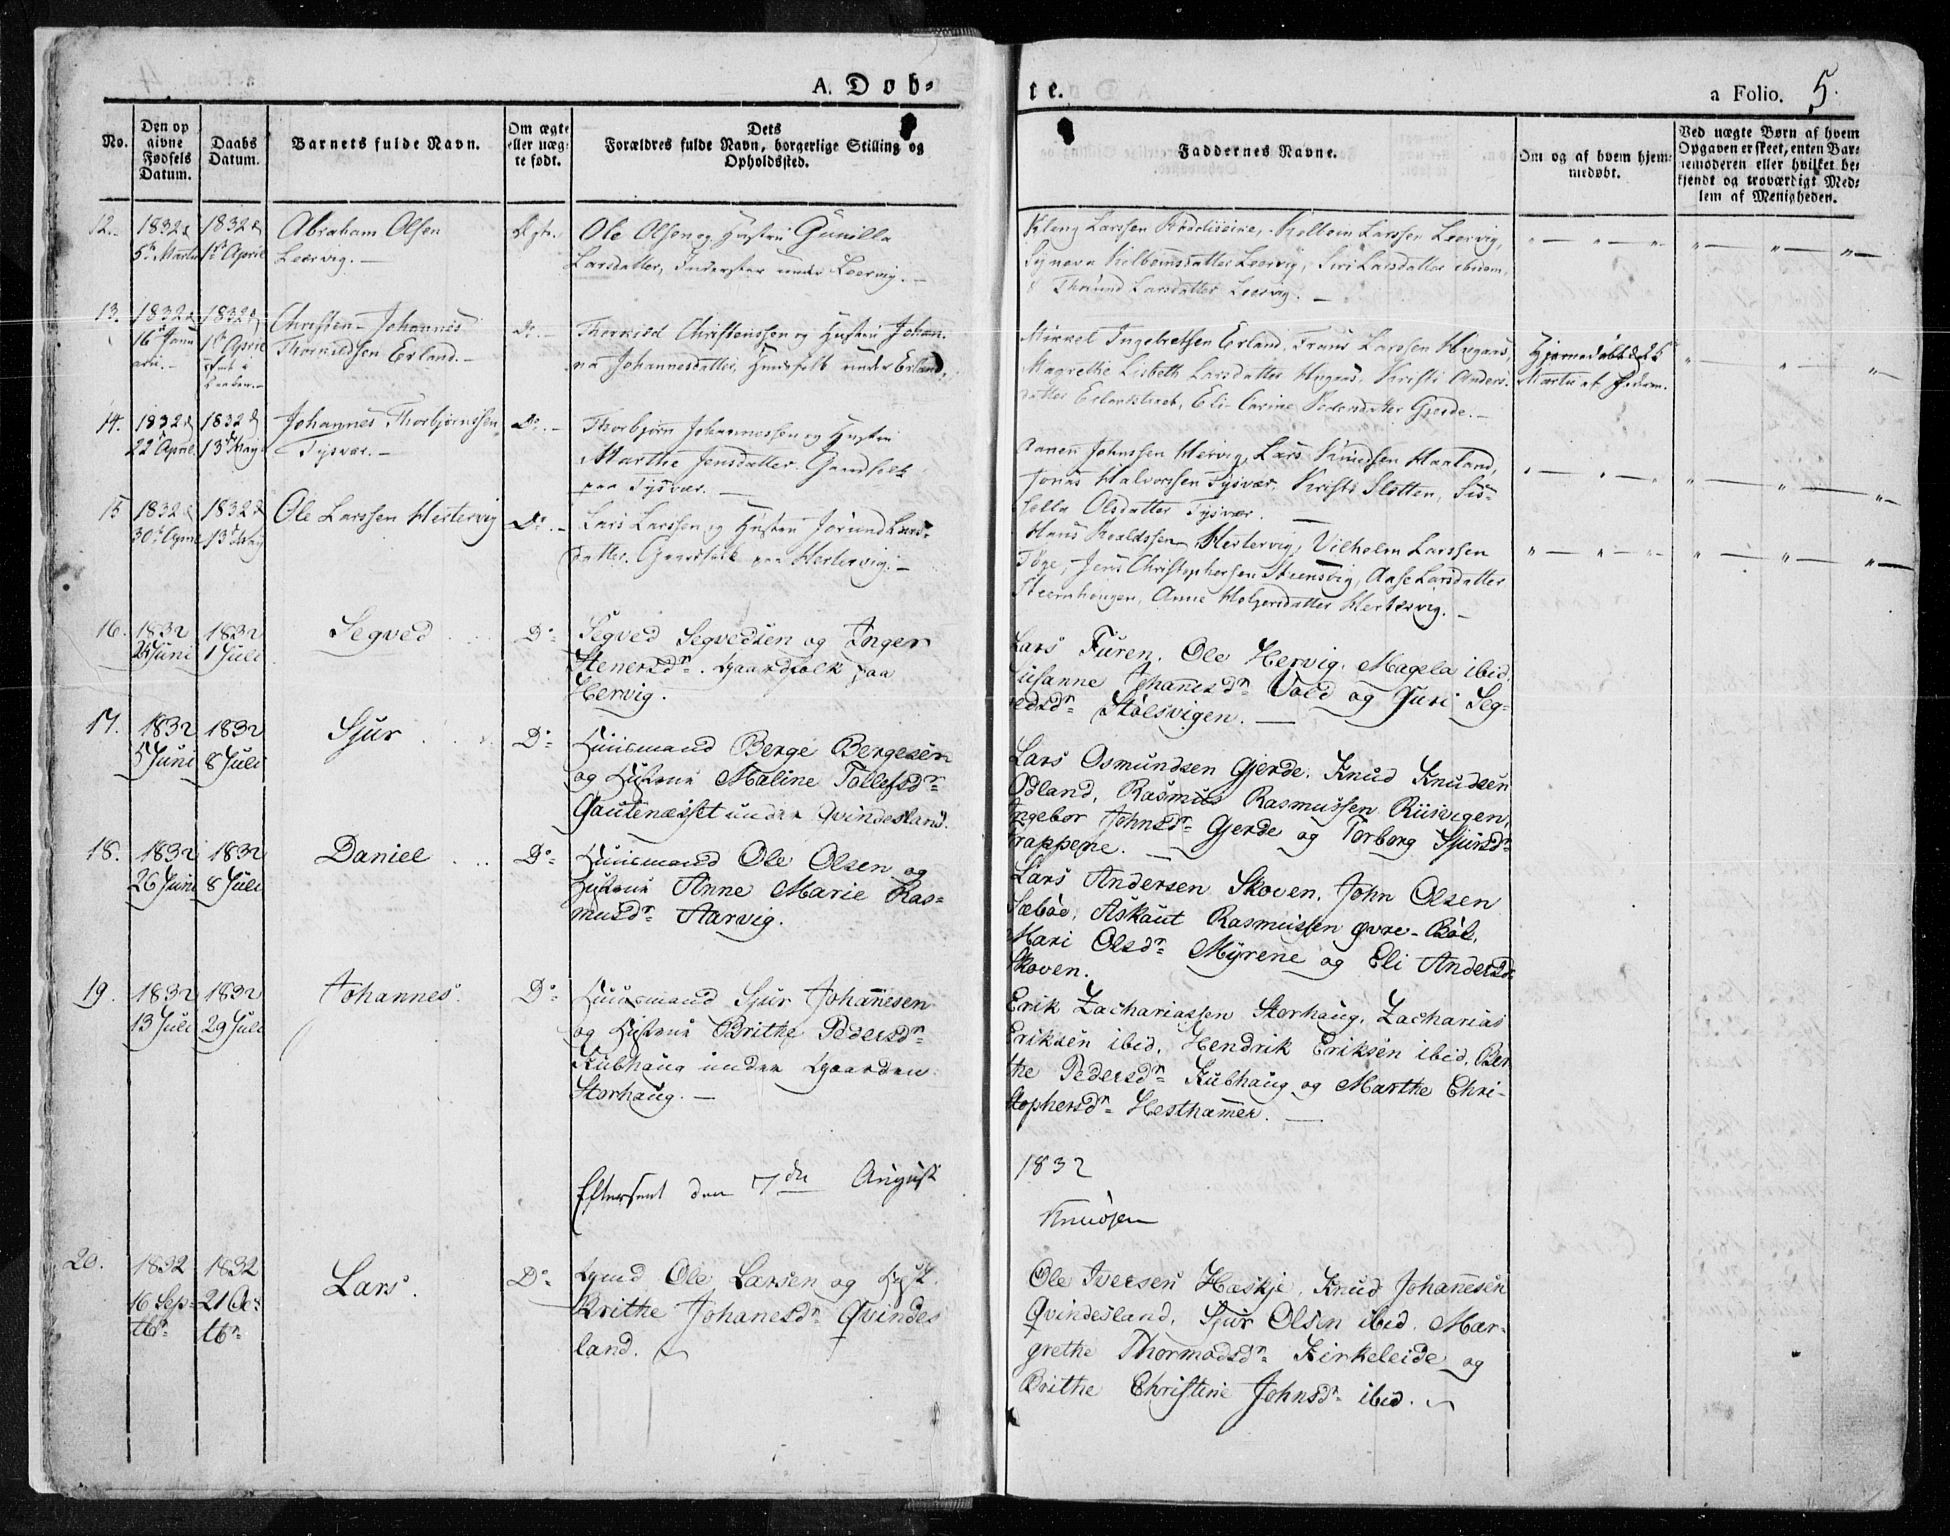 A. Döb-
te.
a Folio. 5.
No.
Den op
givne
Fødsels
Datum.
Daabs
Datum.
Barnets fulde Navn.
Om ægte
eller uæg-
te født.
Dets
Forældres fulde Navn, borgerlige Stilling og
Opholdssted.
Faddernes Navne.
Om og af hvem hjem-
medøbt.
Ved uægte Børn af hvem
Opgaven er skeet, enten Bar-
nemoderen eller hvilket be-
kjendt og troværdigt Med-
lem af Menigheden.
12.
1832 d
5te Martii
1832 d
1ste April
Abraham Olsen
Leervig. -
Ægte.
Ole Olsen og Hustru Gunilla
Larsdatter, Inderster under Leervig. -
Kleng Larssen Leervig,
Larsdatter ibidem,
Larsdatter Leervig. -
13.
1832 d
16 Janu
arii. -
1832 d
1ste April
Christen Johannes
Thorkildsen Erland. -
Do. -
Thorkild Christenssen og Hustru Johan-
na Johannesdatter, Huusfolk under Erland.
Mikkel Ingebretsen Erland, Frans Larssen Hugaas,
Magrethe Lisbeth Larsdatter Hugaas, Kristi Anders-
datter, Eli Carine Pedersdatter Gjerde. -
Hjemmedøbt d 25
Martii af
14.
1832 d
22 April
1832 d
13de May
Johannes Thorbjørnssen
Tysvær. -
Do. -
Thorbjørn Johannessen og Hustru
Marthe Jensdatter. Gaardfolk
paa Tysvær. -
Aanen Johnssen Hervig, Lars Knudsen Haaland,
Jonas Halvorssen Tysvær, Kristi Slotten, Sis-
sella Olsdatter Tysvær. -
15
1832 d
30te April
1832 d
13de May
Ole Larssen Hertervig
Do. -
Lars Larssen og Hustru Jorund Lars-
datter. Gaardfolk paa Hertervig. -
Hans Hertervig, Vilhelm Larssen
Jens Christophersen Steensvig, Aase Larsdatter
Anne Holgersdatter Hertervig. -
16.
1832
24 Juni
1832
1 Juli
Segved
Do
Segved Segvedsen og Inger
Stenersdr. Gaardfolk paa
Hervig.
Lars Furen. Ole Hervig. Magela ibid.
Susanne Johanesdr Vold og Guri Seg-
vedsdr Stølsvigen. -
17.
1832
5 Juni
1832
8 Juli
Sjur
Do
Huusmand Berge Bergesen
og Hustrue Maline Tollefsdr
Gautenæsset under Qvindesland.
Lars Osmundsen Gjerde. Knud Knudsen
Odland, Rasmus Rasmussen Riisvigen,
Ingebor Johnsdr Gjerde og Torborg Sjursdr
Trappene. -
18.
1832
26 Juni
1832
8 Juli
Daniel
Do
Huusmand Ole Olsen og
Hustrue Anne Marie Ras-
musdr Aarvig.
Lars Andersen Skoven. John Olsen
Sæbøe, Askaut Rasmussen Øvre-Bøe,
Mari Olsdr Myrene og Eli Andersdr
Skoven.
19.
1832
13 Juli
1832
29 Juli
Johannes.
Do
Huusmand Sjur Johanesen
og Hustrue Brithe Pedersdr
Kubhaug under Gaarden
Storhaug. -
Erik Zachariassen Storhaug, Zacharias
Eriksen ibid. Hendrik Eriksen ibid. Ber-
the Pedersdr Kubhaug og Marthe Chri-
stophersdr Hesthamer. -
Eftersent den 7de August
1832
Knudsen
20.
1832
16 Sep-
tbr
1832
21 Oc-
tbr
Lars.
Do
Gmd Ole Larsen og Hust.
Brithe Johanesdr Qvindes
land.
Ole Iversen Hæskje, Knud Johanesen
Qvindesland, Sjur Olsen ibid. Mar-
grethe Thormodsdr Kirkeleide og
Brithe Christine Johnsdr ibid.